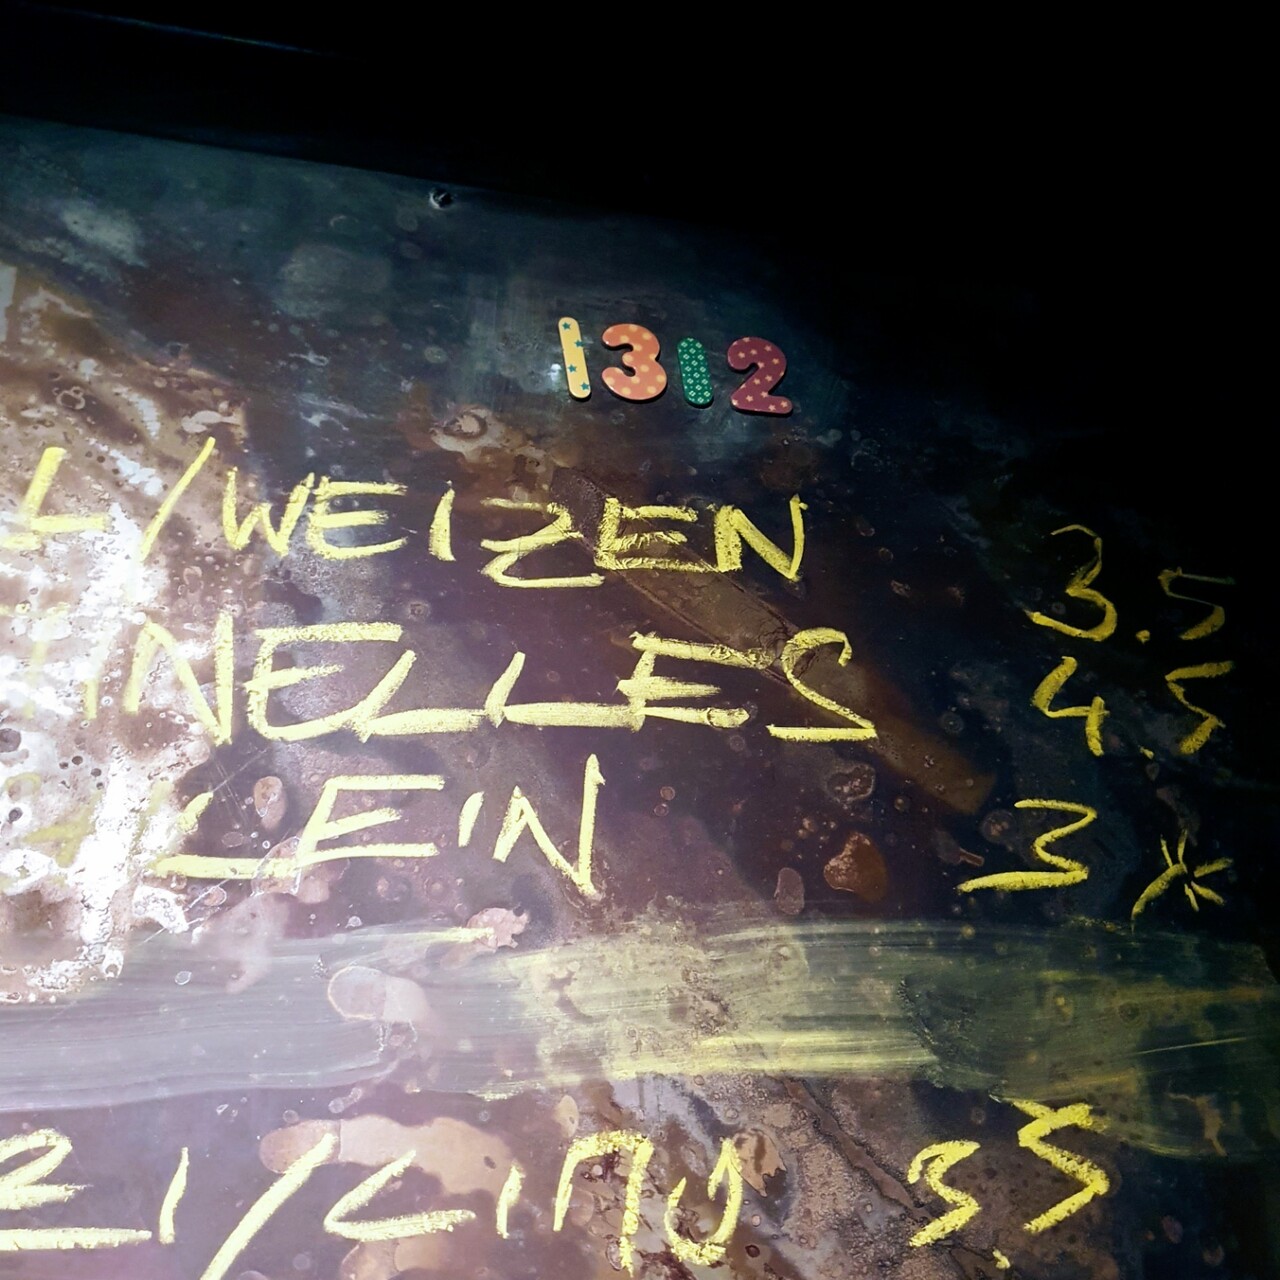 1312
L/WEIZEN 3.5
NELLES 4.5
KLEIN 3 *
EI/CINO 3.5